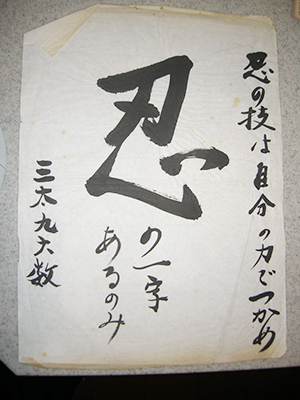 忍の技は自分の力でつかめ
忍
の一字
あるのみ
三太九六数